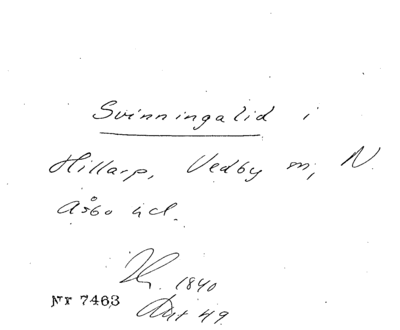 Svinningalid i
Hillarp, Vedby sn, N.
Åsbo hd.
1840
Nr 7463
Akt 49.